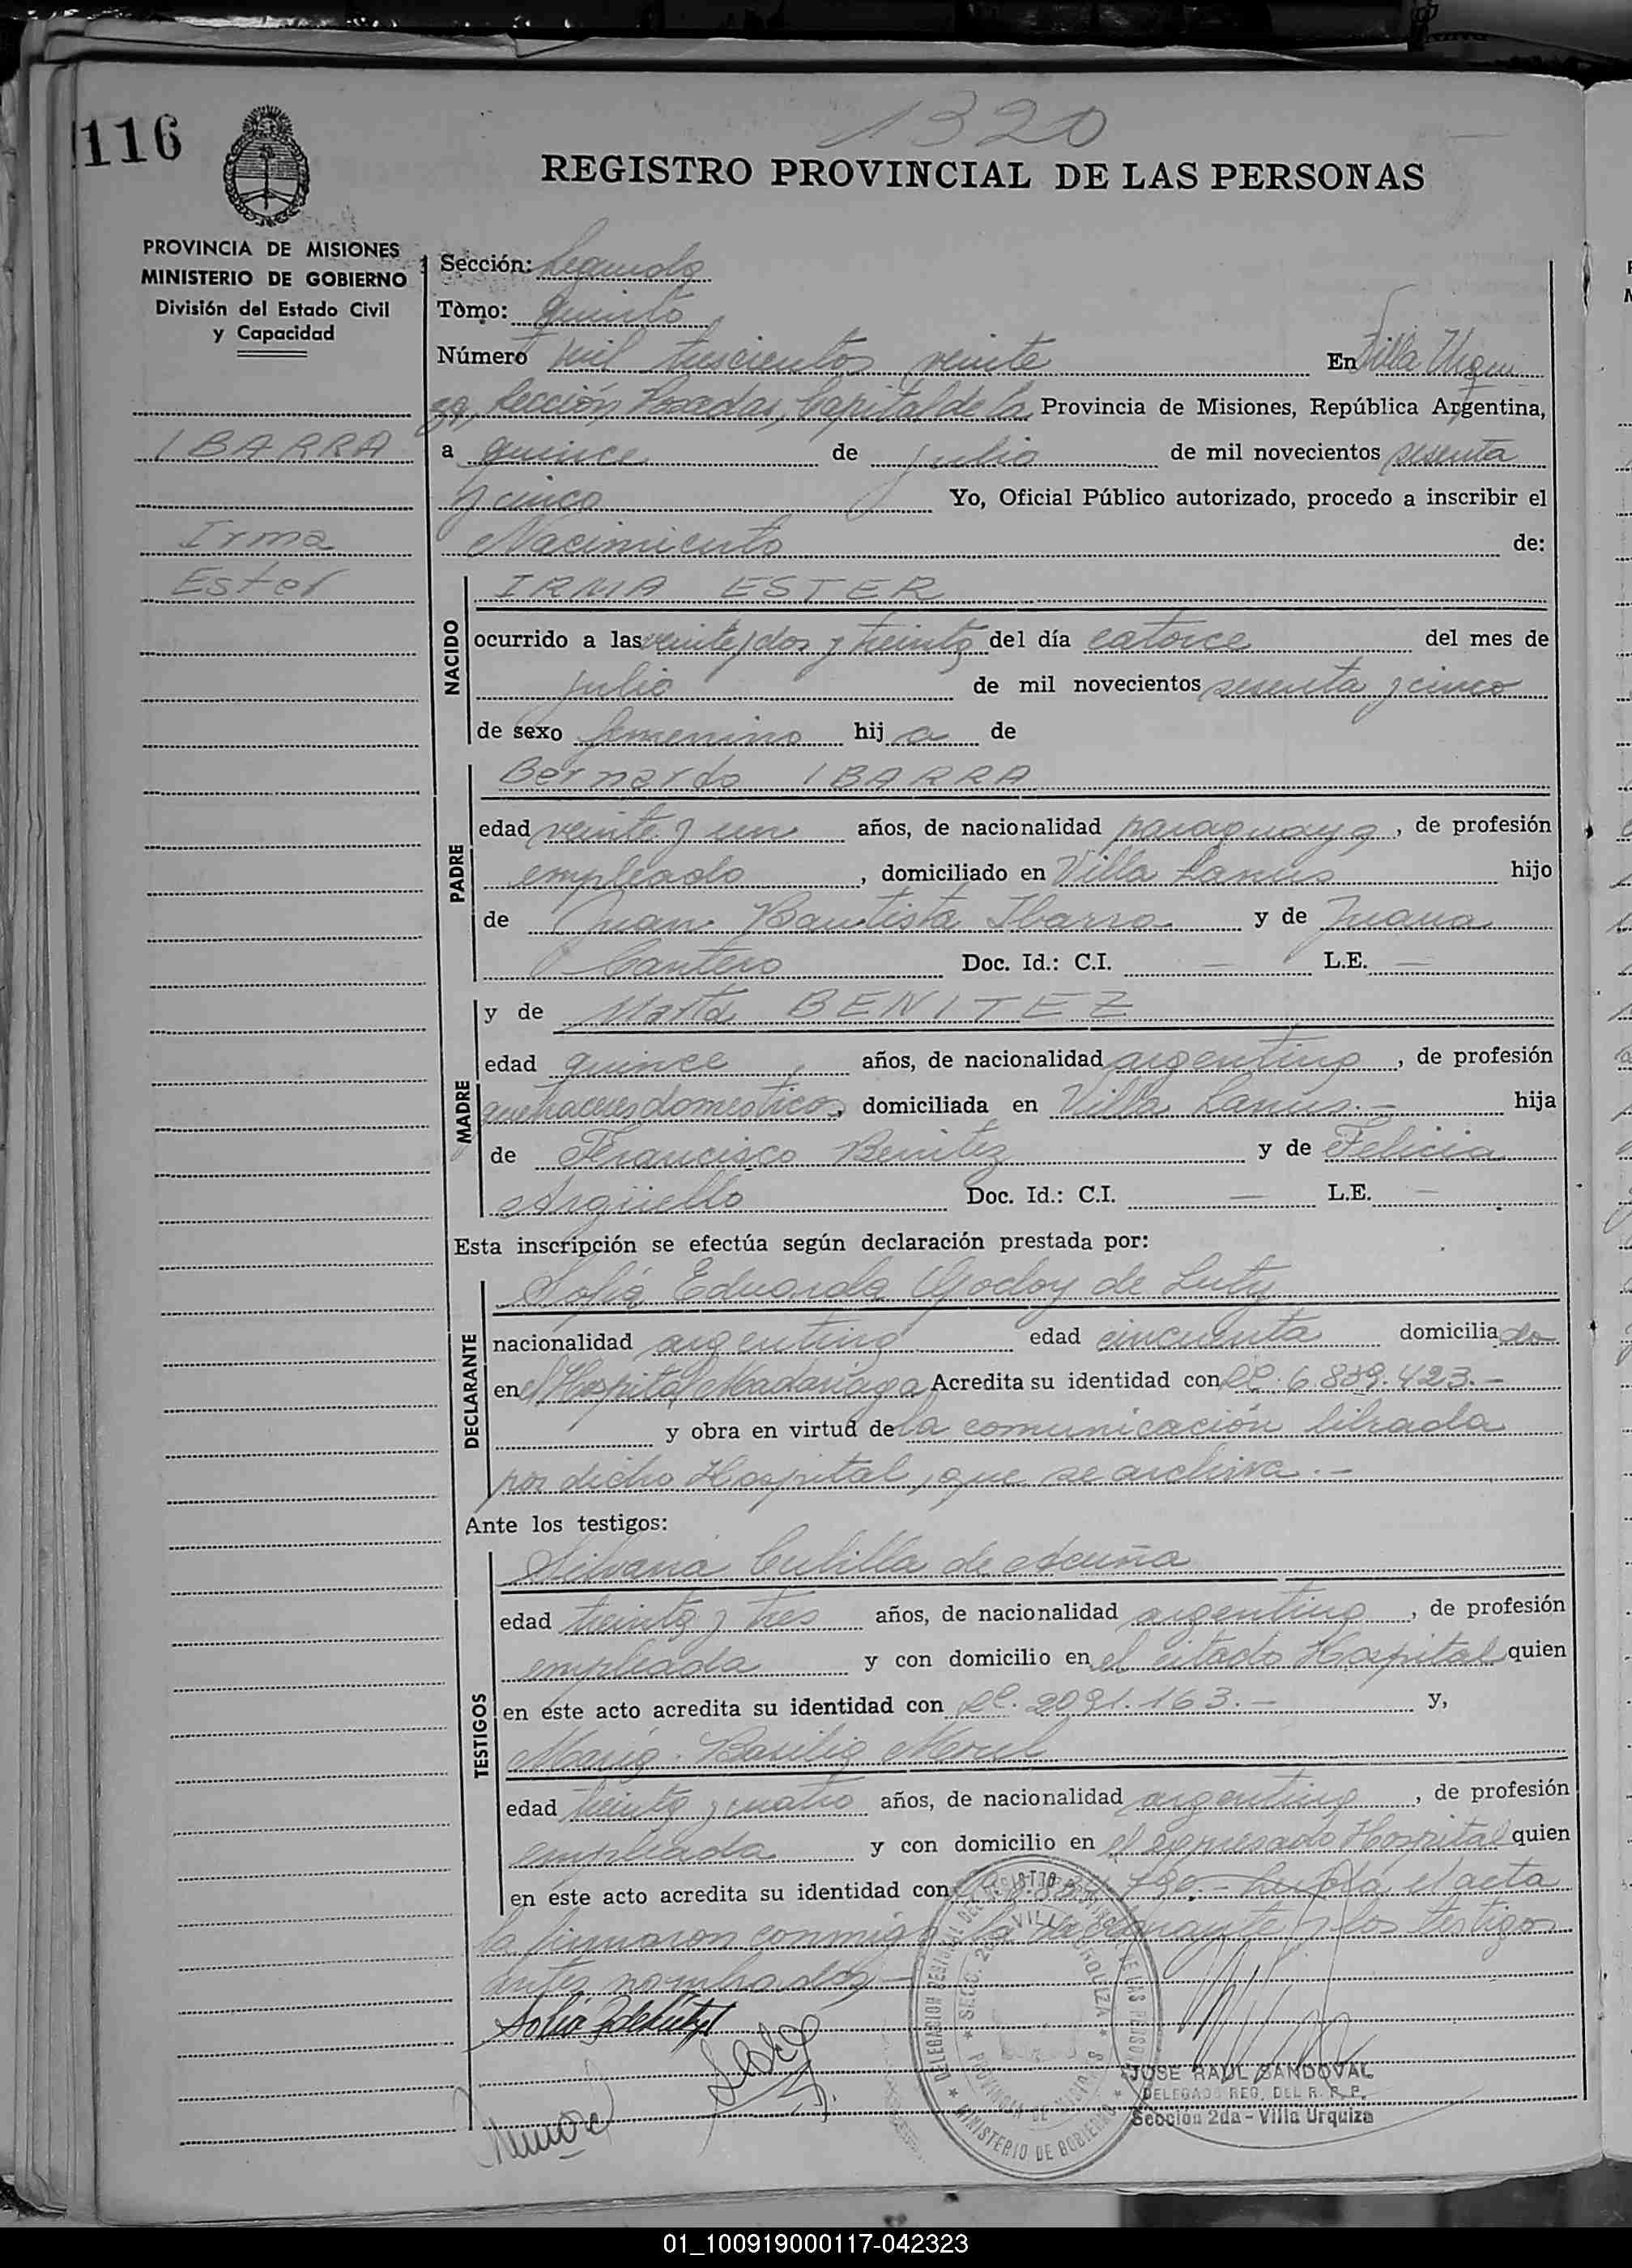 116
1320
REGISTRO PROVINCIAL DE LAS PERSONAS
PROVINCIA DE MISIONES
MINISTERIO DE GOBIERNO
División del Estado Civil
y Capacidad
IBARRA
Irma
Ester
Sección: Segunda
Tomo: quinto
Número mil trescientos veinte En Villa Urqui
za, Sección Posadas, Capital de la Provincia de Misiones, República Argentina,
a quince de julio de mil novecientos sesenta
y cinco Yo, Oficial Público autorizado, procedo a inscribir el
Nacimiento de:
NACIDO
IRMA ESTER
ocurrido a las veinte/dos y treinta del día catorce del mes de
julio de mil novecientos sesenta y cinco
de sexo femenino hij a de
PADRE
Bernardo IBARRA
edad veinte y un años, de nacionalidad paraguaya, de profesión
empleado, domiciliado en Villa Lanus hijo
de Juan Bautista Ibarra y de Juana
Cantero Doc. Id.: C.I. — L.E. —
MADRE
y de Marta BENITEZ
edad quince años, de nacionalidad argentina, de profesión
quehaceres domesticos, domiciliada en Villa Lanus.- hija
de Francisco Benitez y de Felicia
Argüello Doc. Id.: C.I. — L.E. —
Esta inscripción se efectúa según declaración prestada por:
DECLARANTE
Sofia Eduarda Godoy de Luty
nacionalidad argentina edad cincuenta domicilia da
en el Hospital Madariaga Acredita su identidad con LC. 6.839.423.-
y obra en virtud de la comunicación librada
por dicho Hospital, que se archiva.-
Ante los testigos:
TESTIGOS
Silvana Cubilla de Acuña
edad treinta y tres años, de nacionalidad argentina, de profesión
empleada y con domicilio en el citado Hospital quien
en este acto acredita su identidad con LC. 2091.163.- y,
María Basilia Morel
edad treinta y cuatro años, de nacionalidad argentina, de profesión
empleada y con domicilio en el expresado Hospital quien
en este acto acredita su identidad con el acta
la firmaron conmigo la declarante y los testigos
antes nombrados.-
DELEGACION REGIONAL DEL REGISTRO PROVINCIAL DE LAS PERSONAS
SECC. 2da VILLA URQUIZA
PROVINCIA DE MISIONES
MINISTERIO DE GOBIERNO
JOSE RAUL SANDOVAL
DELEGADO REG. DEL R. P. P.
Sección 2da - Villa Urquiza
01_100919000117-042323